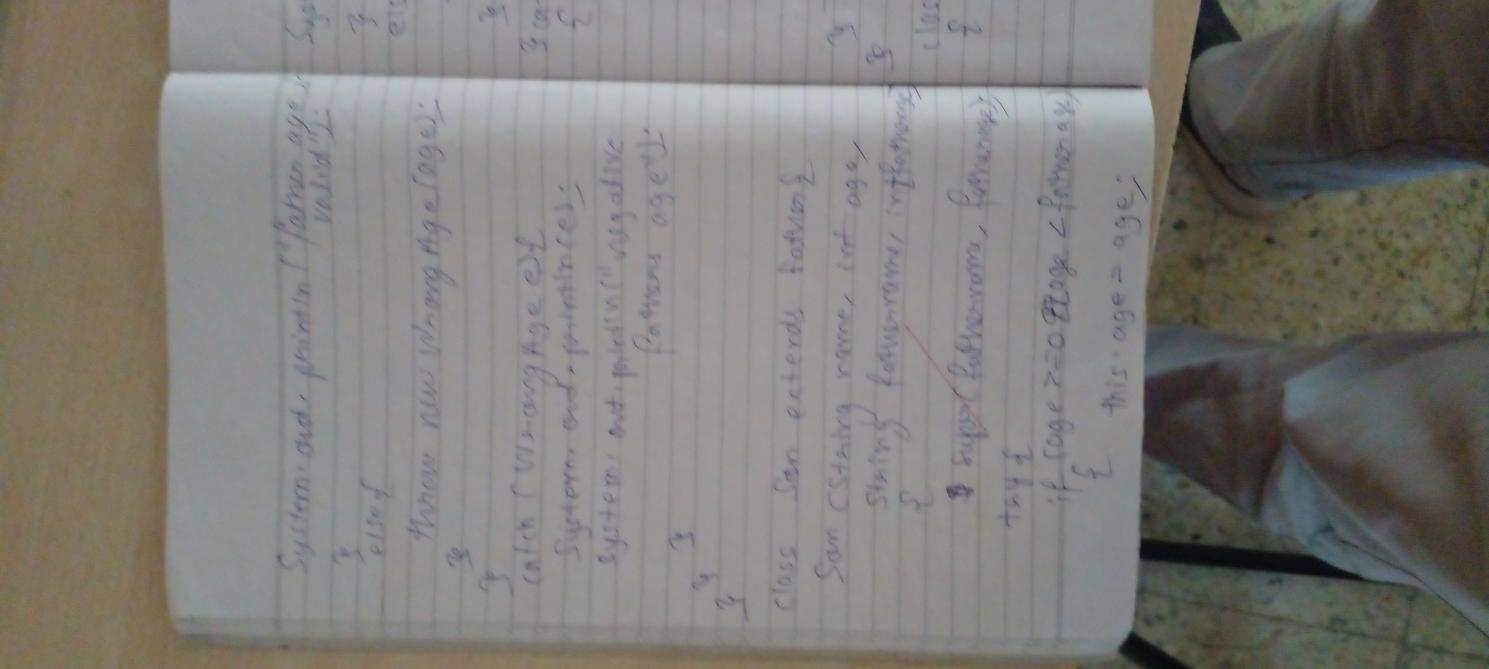 System.out.println("father age is
valid");
}
else{
throw new WrongAge(age);
}
}
catch (WrongAge e){
System.out.println(e);
System.out.println("negative
fathers age");
}
}
}
class Son extends father{
Son (String name, int age,
String fathername, int fatherage)
{
super(fathername, fatherage);
try{
if (age >=0 && age < fatherage)
{
this.age = age;